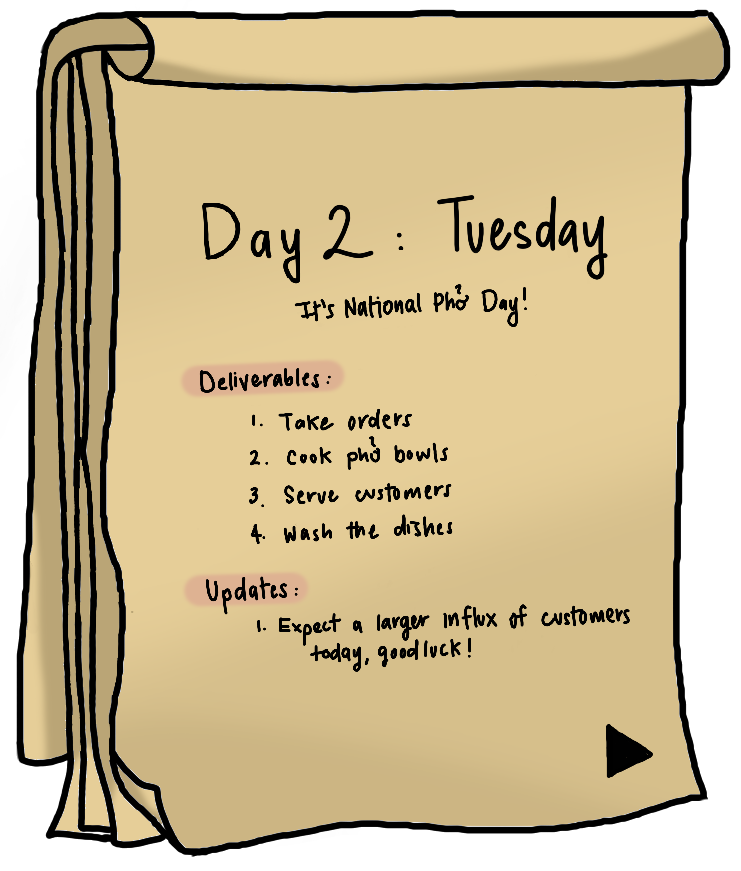 Day 2 : Tuesday
It's National Phở Day!
Deliverables:
1. Take orders
2. Cook phở bowls
3. Serve customers
4. Wash the dishes
Updates:
1. Expect a larger influx of customers
today, good luck!